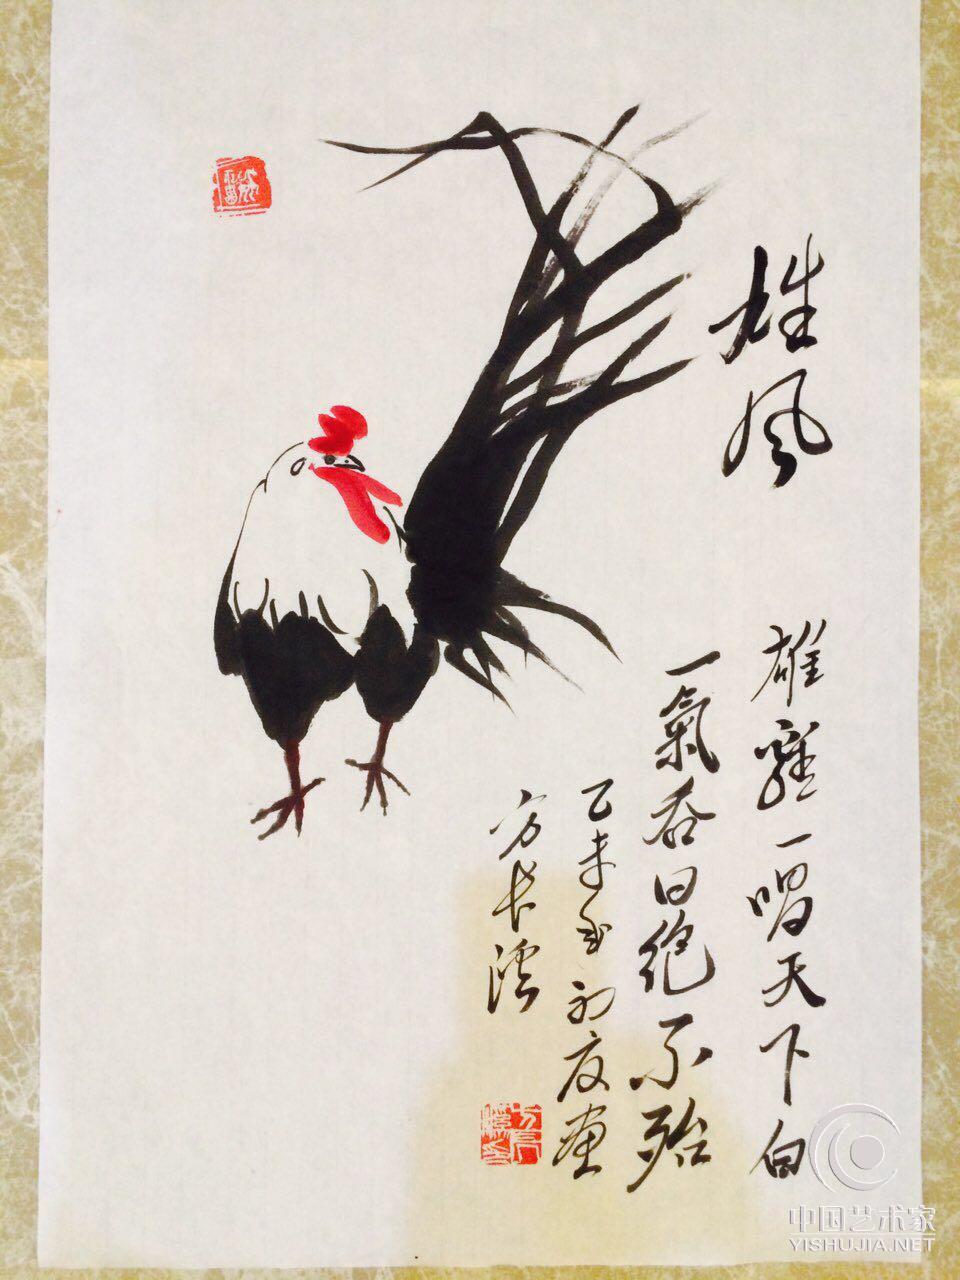 雄风
雄鸡一唱天下白
一氣吞日绝不殆
乙未
初度画
方长
中国艺术家
YISHUJIA.NET